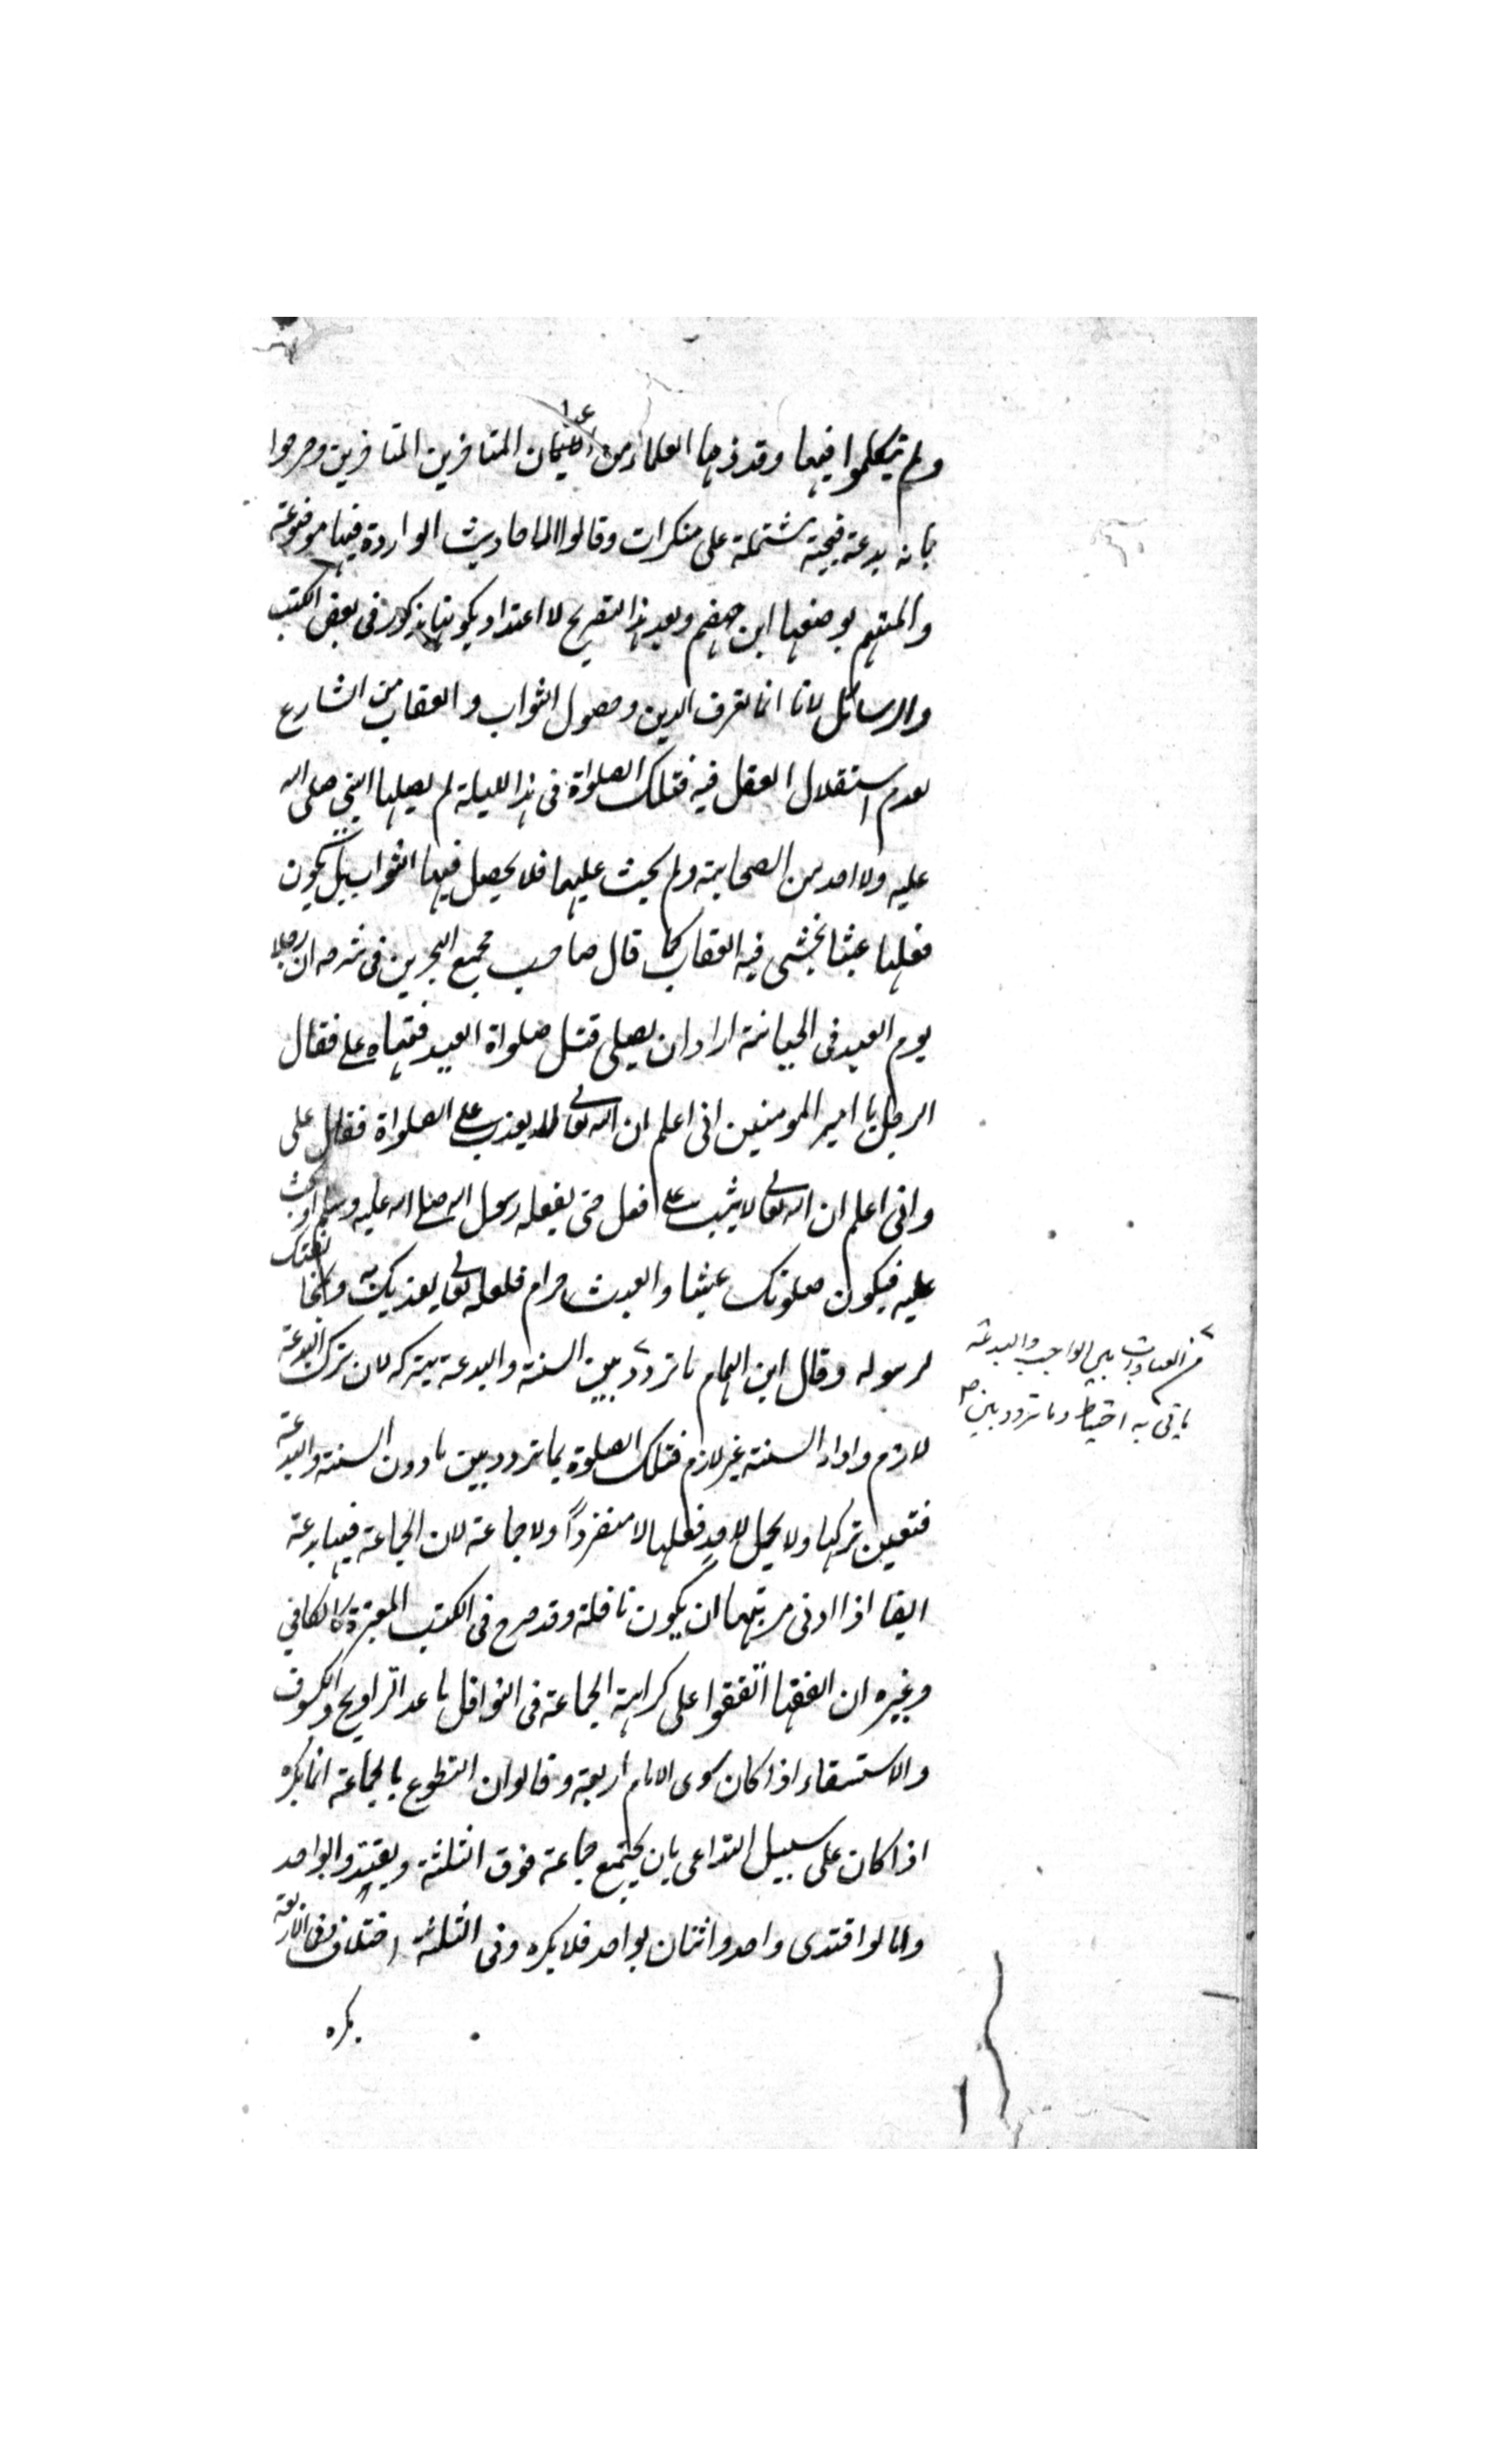 ولم يتكلموا فيها وقد ذمها العلماء من اعيان المتاخرين المتاخرين وصرحوا
بانه بدعة قبيحة مشتملة على منكرات وقالوا الاحاديث الواردة فيها موضوعة
والمتهم بوضعها ابن جهضم وبعد هذا التصريح لا اعتداد بكونها مذكورا فى بعض الكتب
والرسائل لانا انما نعرف الدين وحصول الثواب والعقاب من الشارع
لعدم استقلال العقل فيه فتلك الصلواة فى هذا الليلة لم يصليها النبي صلى الله
عليه ولا احد من الصحابة ولم يحث عليها فلا يحصل فيها الثواب بل يكون
فعلها عبثا يخشى فيه العقاب كما قال صاحب مجمع البحرين فى شرحه ان رجلا
يوم العيد فى الجبانة اراد ان يصلى قبل صلواة العيد فنهاه على فقال
الرجل يا امير المومنين انى اعلم ان الله تعالى لا يعذب على الصلواة فقال على
وانى اعلم ان الله تعالى لا يثيب على فعل حتى يفعله رسول الله صلى الله عليه وسلم او يحث
عليه فيكون صلوتك عبثا والعبث حرام فلعله تعالى يعذبك به لمخالفتك
لرسوله وقال ابن الهمام ما تردد بين السنة والبدعة يتركه لان ترك البدعة
من العبادات بين الواجب والبدعة
ياتى به احتياطا وما تردد بين
لازم واداء السنة غير لازم فتلك الصلوة بما تردد بين مادون السنة والبدعة
فتعين تركها ولا يحل لاحد فعلها لا منفردا ولا جماعة لان الجماعة فيها بدعة
ايضا اذا ادنى مرتبتها ان يكون نافلة وقد صرح فى الكتب المعتبرة كالكافي
وغيره ان الفقها اتفقوا على كراهة الجماعة فى النوافل ما عد التراويح والكسوف
والاستسقاء اذا كان سوى الامام اربعة وقالوان التطوع بالجماعة انما يكره
اذا كان على سبيل التداعى بان يجتمع جماعة فوق الثلثة ويقتدوا بواحد
واما لو اقتدى واحد واثنان بواحد فلا يكره وفى الثلثة اختلاف وفى الاربعة
يكره